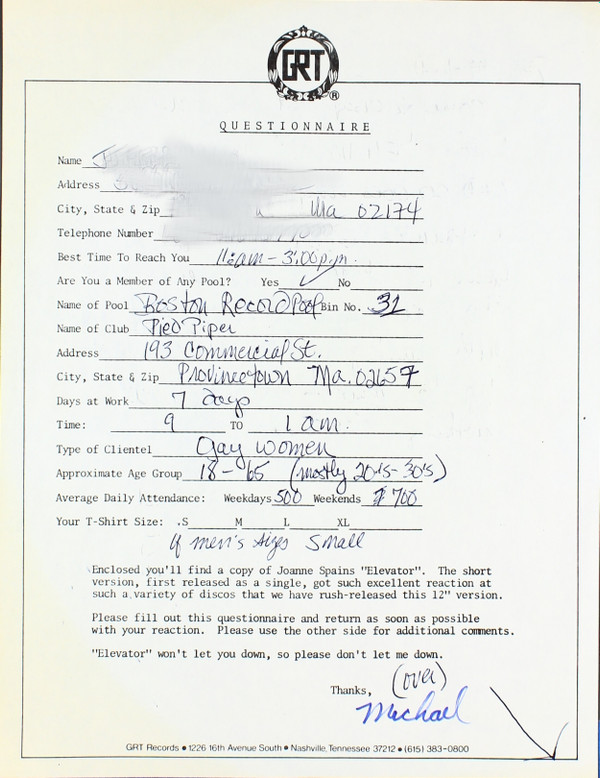 GRT
®
QUESTIONNAIRE
Name
Address
City, State & Zip Ma 02174
Telephone Number
Best Time To Reach You 11:am - 3:00p.m.
Are You a Member of Any Pool? Yes ✓ No
Name of Pool Boston Record Pool Bin No. 31
Name of Club Pied Piper
Address 193 Commercial St.
City, State & Zip Provincetown Ma. 02657
Days at Work 7 days
Time: 9 TO 1 am.
Type of Clientel Gay women
Approximate Age Group 18 - 65 (mostly 20's - 30's)
Average Daily Attendance: Weekdays 500 Weekends 700
Your T-Shirt Size: .S M L XL
if men's sizes small
Enclosed you'll find a copy of Joanne Spains "Elevator". The short
version, first released as a single, got such excellent reaction at
such a variety of discos that we have rush-released this 12" version.
Please fill out this questionnaire and return as soon as possible
with your reaction. Please use the other side for additional comments.
"Elevator" won't let you down, so please don't let me down.
Thanks, (over)
Michael
GRT Records • 1226 16th Avenue South • Nashville, Tennessee 37212 • (615) 383-0800